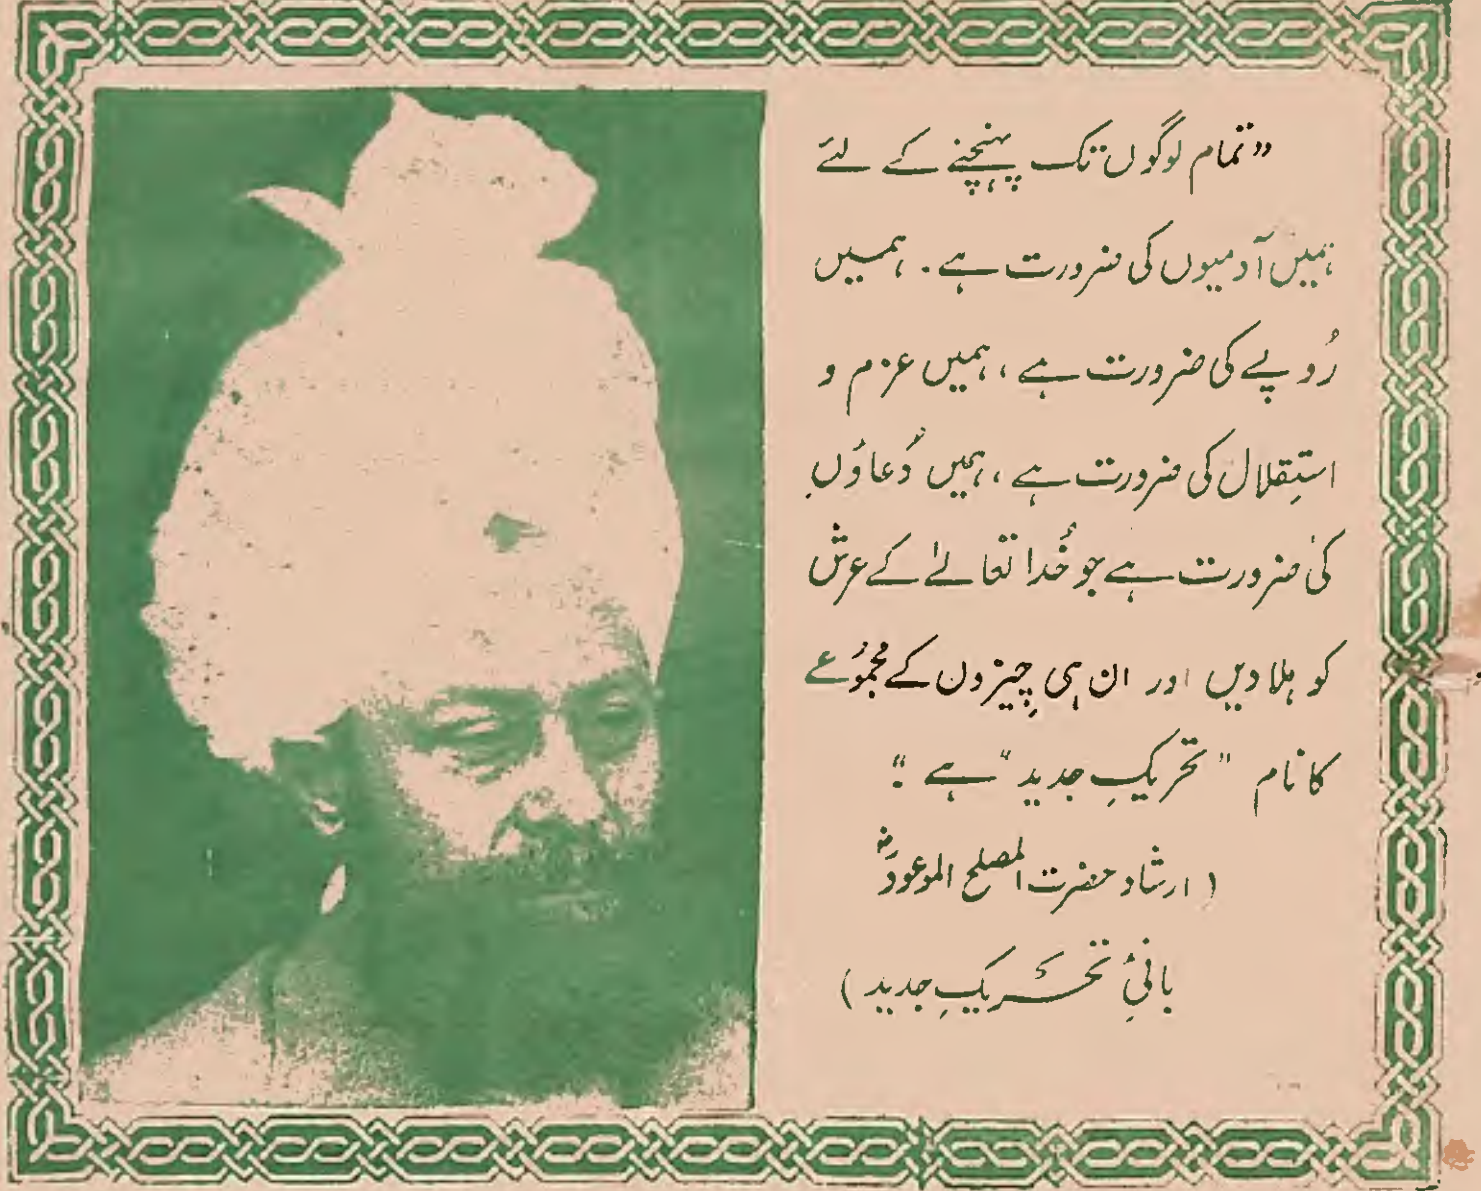 "تمام لوگوں تک پہنچنے کے لئے
ہمیں آدمیوں کی ضرورت ہے۔ ہمیں
رُوپے کی ضرورت ہے، ہمیں عزم و
استقلال کی ضرورت ہے، ہمیں دُعاؤں
کی ضرورت ہے جو خُدا تعالےٰ کے عرش
کو ہلا دیں اور ان ہی چیزوں کے مجمُوعے
کا نام "تحریکِ جدید" ہے۔"
(ارشاد حضرت المصلح الموعودؓ
بانیٔ تحریکِ جدید)